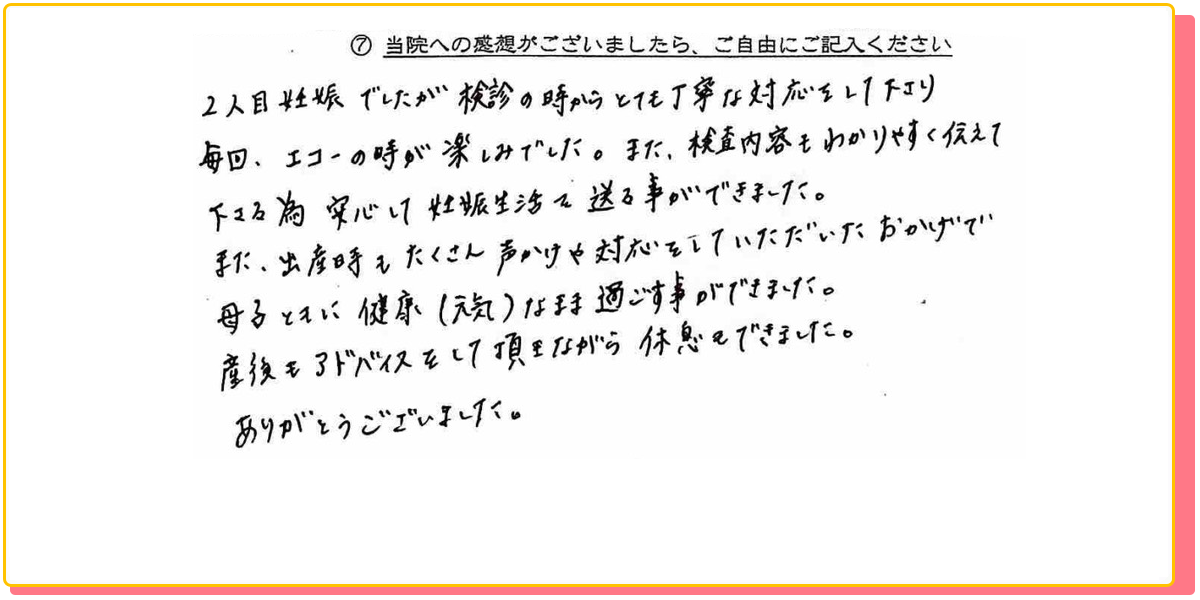 ⑦ 当院への感想がございましたら、ご自由にご記入ください
2人目妊娠でしたが検診の時からとても丁寧な対応をして下さり
毎回、エコーの時が楽しみでした。また、検査内容もわかりやすく伝えて
下さる為安心して妊娠生活を送る事ができました。
また、出産時もたくさん声かけや対応をしていただいたおかげで
母子ともに健康(元気)なまま過ごす事ができました。
産後もアドバイスをして頂きながら休息もできました。
ありがとうございました。